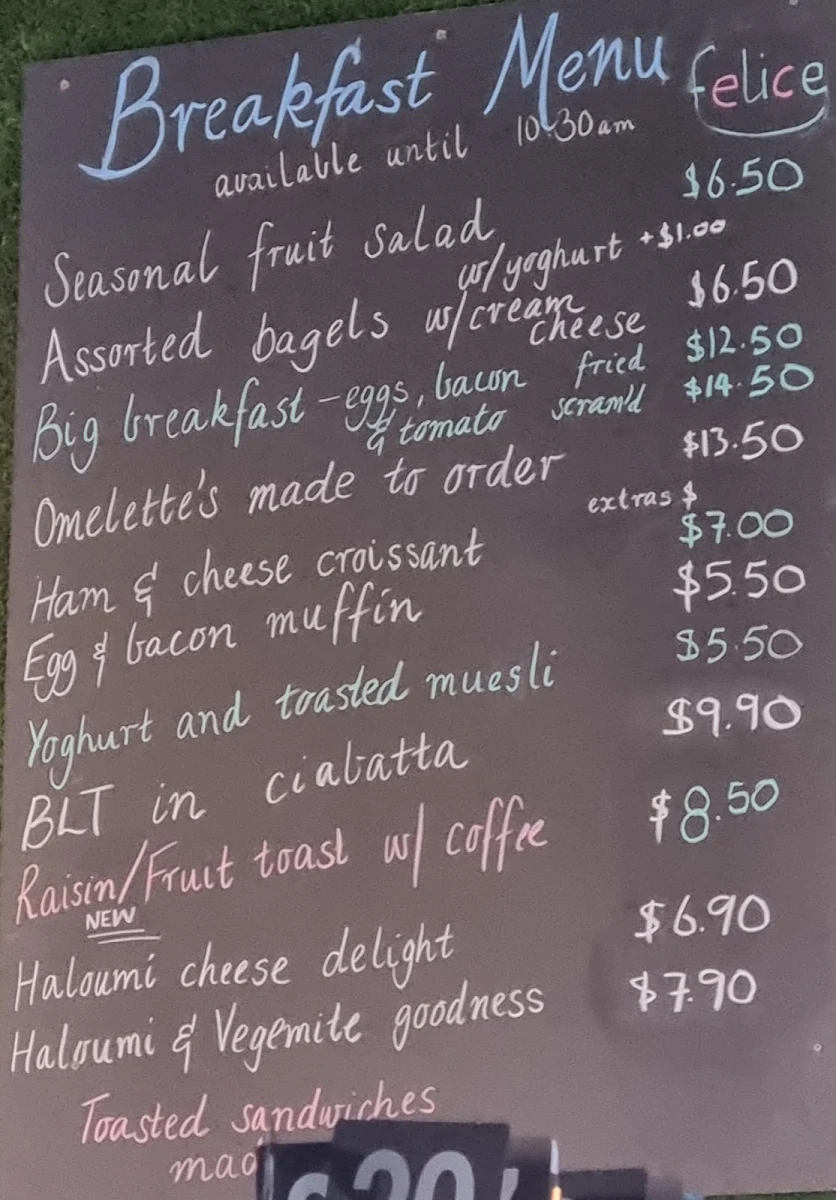 Breakfast Menu felice
available until 10:30am
Seasonal fruit salad $6.50
w/yoghurt +$1.00
Assorted bagels w/cream cheese $6.50
Big breakfast - eggs, bacon fried $12.50
& tomato scram'd $14.50
Omelette's made to order $13.50
extras $
Ham & cheese croissant $7.00
Egg & bacon muffin $5.50
Yoghurt and toasted muesli $5.50
BLT in ciabatta $9.90
Raisin/Fruit toast w/ coffee $8.50
NEW
Haloumi cheese delight $6.90
Haloumi & Vegemite goodness $7.90
Toasted sandwiches